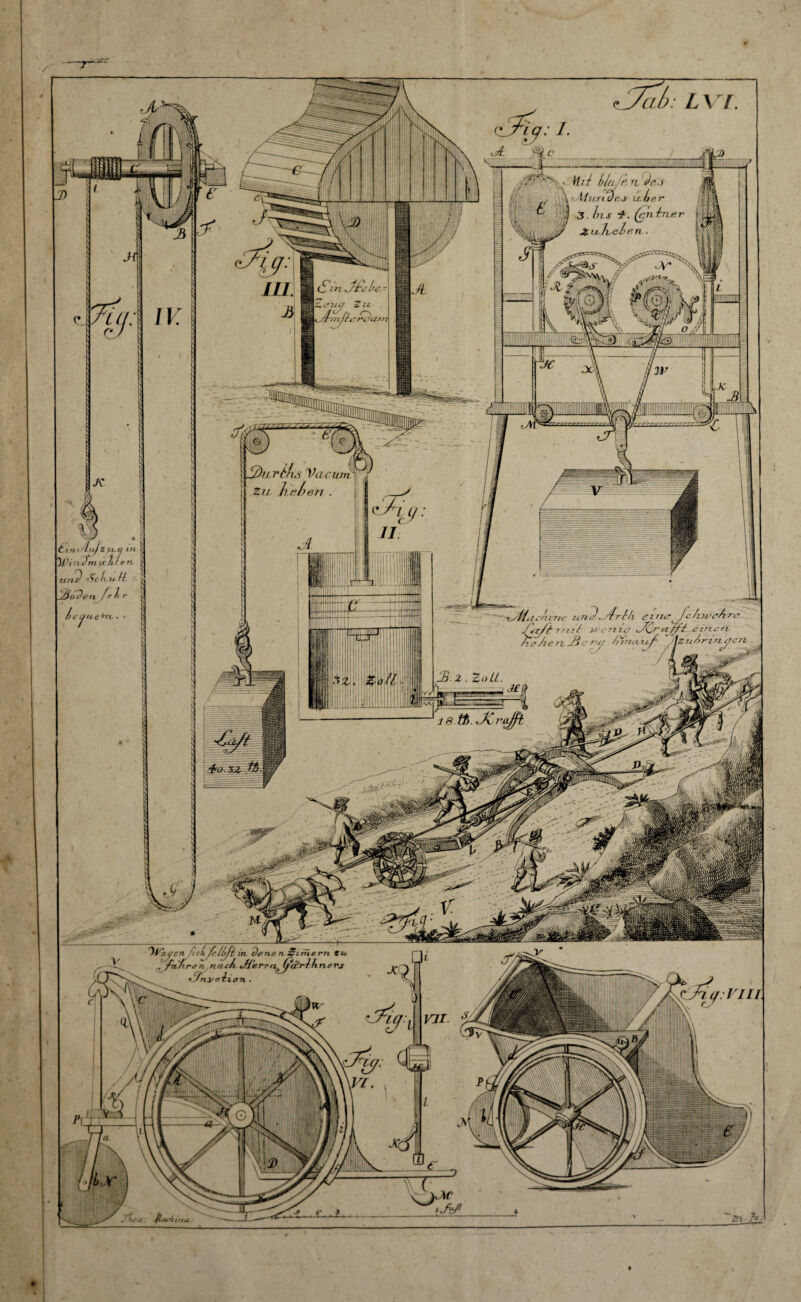 Tab: LVI.
Fig: I.
A C D
Mit blasen des
Mundes über
3. bis 4. Cntner
zu heben.
E
G
S N
R
F
I
O
H X W K
B
M T L
V
A
D I E
B F
H
Fig: IV.
K
G
Ein Aufzug in
Windmühlen
und Schutt
Böden sehr
bequem.
C
D
Fig:
III.
B
A
Ein Hebe=
Zeug zu
Amsterdam
F E
Durchs Vacuum
zu heben.
Fig:
II.
A
C
32. Zoll.
B. 2. Zoll.
H
18 ℔. Krafft
Last
40.32 ℔.
Machine und Arth eine schwehre
Last mit wenig Krafft einen
hohen Berg hinauf zubringen.
D H
D
L B
M
Fig: V.
Wagen sich selbst in denen Zimern zu
fahren, nach Herrn Gärthners
Invetion.
V
C
W
F
Fig:
VI.
P
a
b X
D
H
E
M
1 Fuß
X
i
Fig: VII.
l
X
Fig: VIII
Y
S
V
P
N
B
H
E
Thea: Machina: